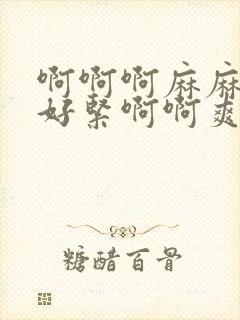 啊啊啊麻麻
好緊啊啊爽
糖醋百骨